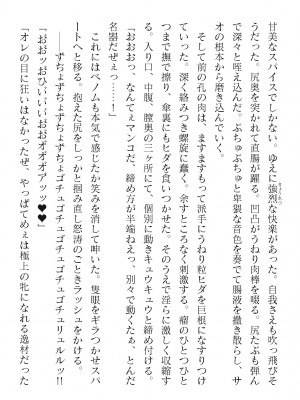 甘美なスパイスでしかない。ゆえに強烈な快楽があった。自我さえも吹っ飛びそ
うだった。尻奥を突かれて直腸が躍る。凹凸がうねり肉棒を啜る。尻たぶも弾ん
で深々と咥え込んだ。ぶちゅぶちゅと卑猥な音色を奏でて腸液を撒き散らし、サ
オの根本から磨き込んでいく。
そして前の孔の肉は、ますますもって派手にうねり粒ヒダを巨根になすりつけ
まで撫で擦り、傘裏にもヒダを食いつかせた。そのうえで淫らに激しく収縮す
る。入り口、中腹、膣奥の三ヶ所にて、個別に動きキュウキュウと締め付ける。
「おおおっ、なんてぇマンコだ、締め方が半端ねえっ、別々で動くたぁ、とんだ
名器だぜぇっ……！」
これにはベノムも本気で感じたか笑みを消して呻いた。隻眼をギラつかせスパ
ートへと移る。抱えた尻をしっかと掴み直し怒濤のごときラッシュをかける。
ずちょずちょずちょずちょゴチュゴチュゴチュゴチュゴチュリュルルッ!!
「おおッッおひいいいおおオオオアッッ♥♥」
「オレの目に狂いはなかったぜ、やっぱてめぇは極上の牝になれる逸材だった